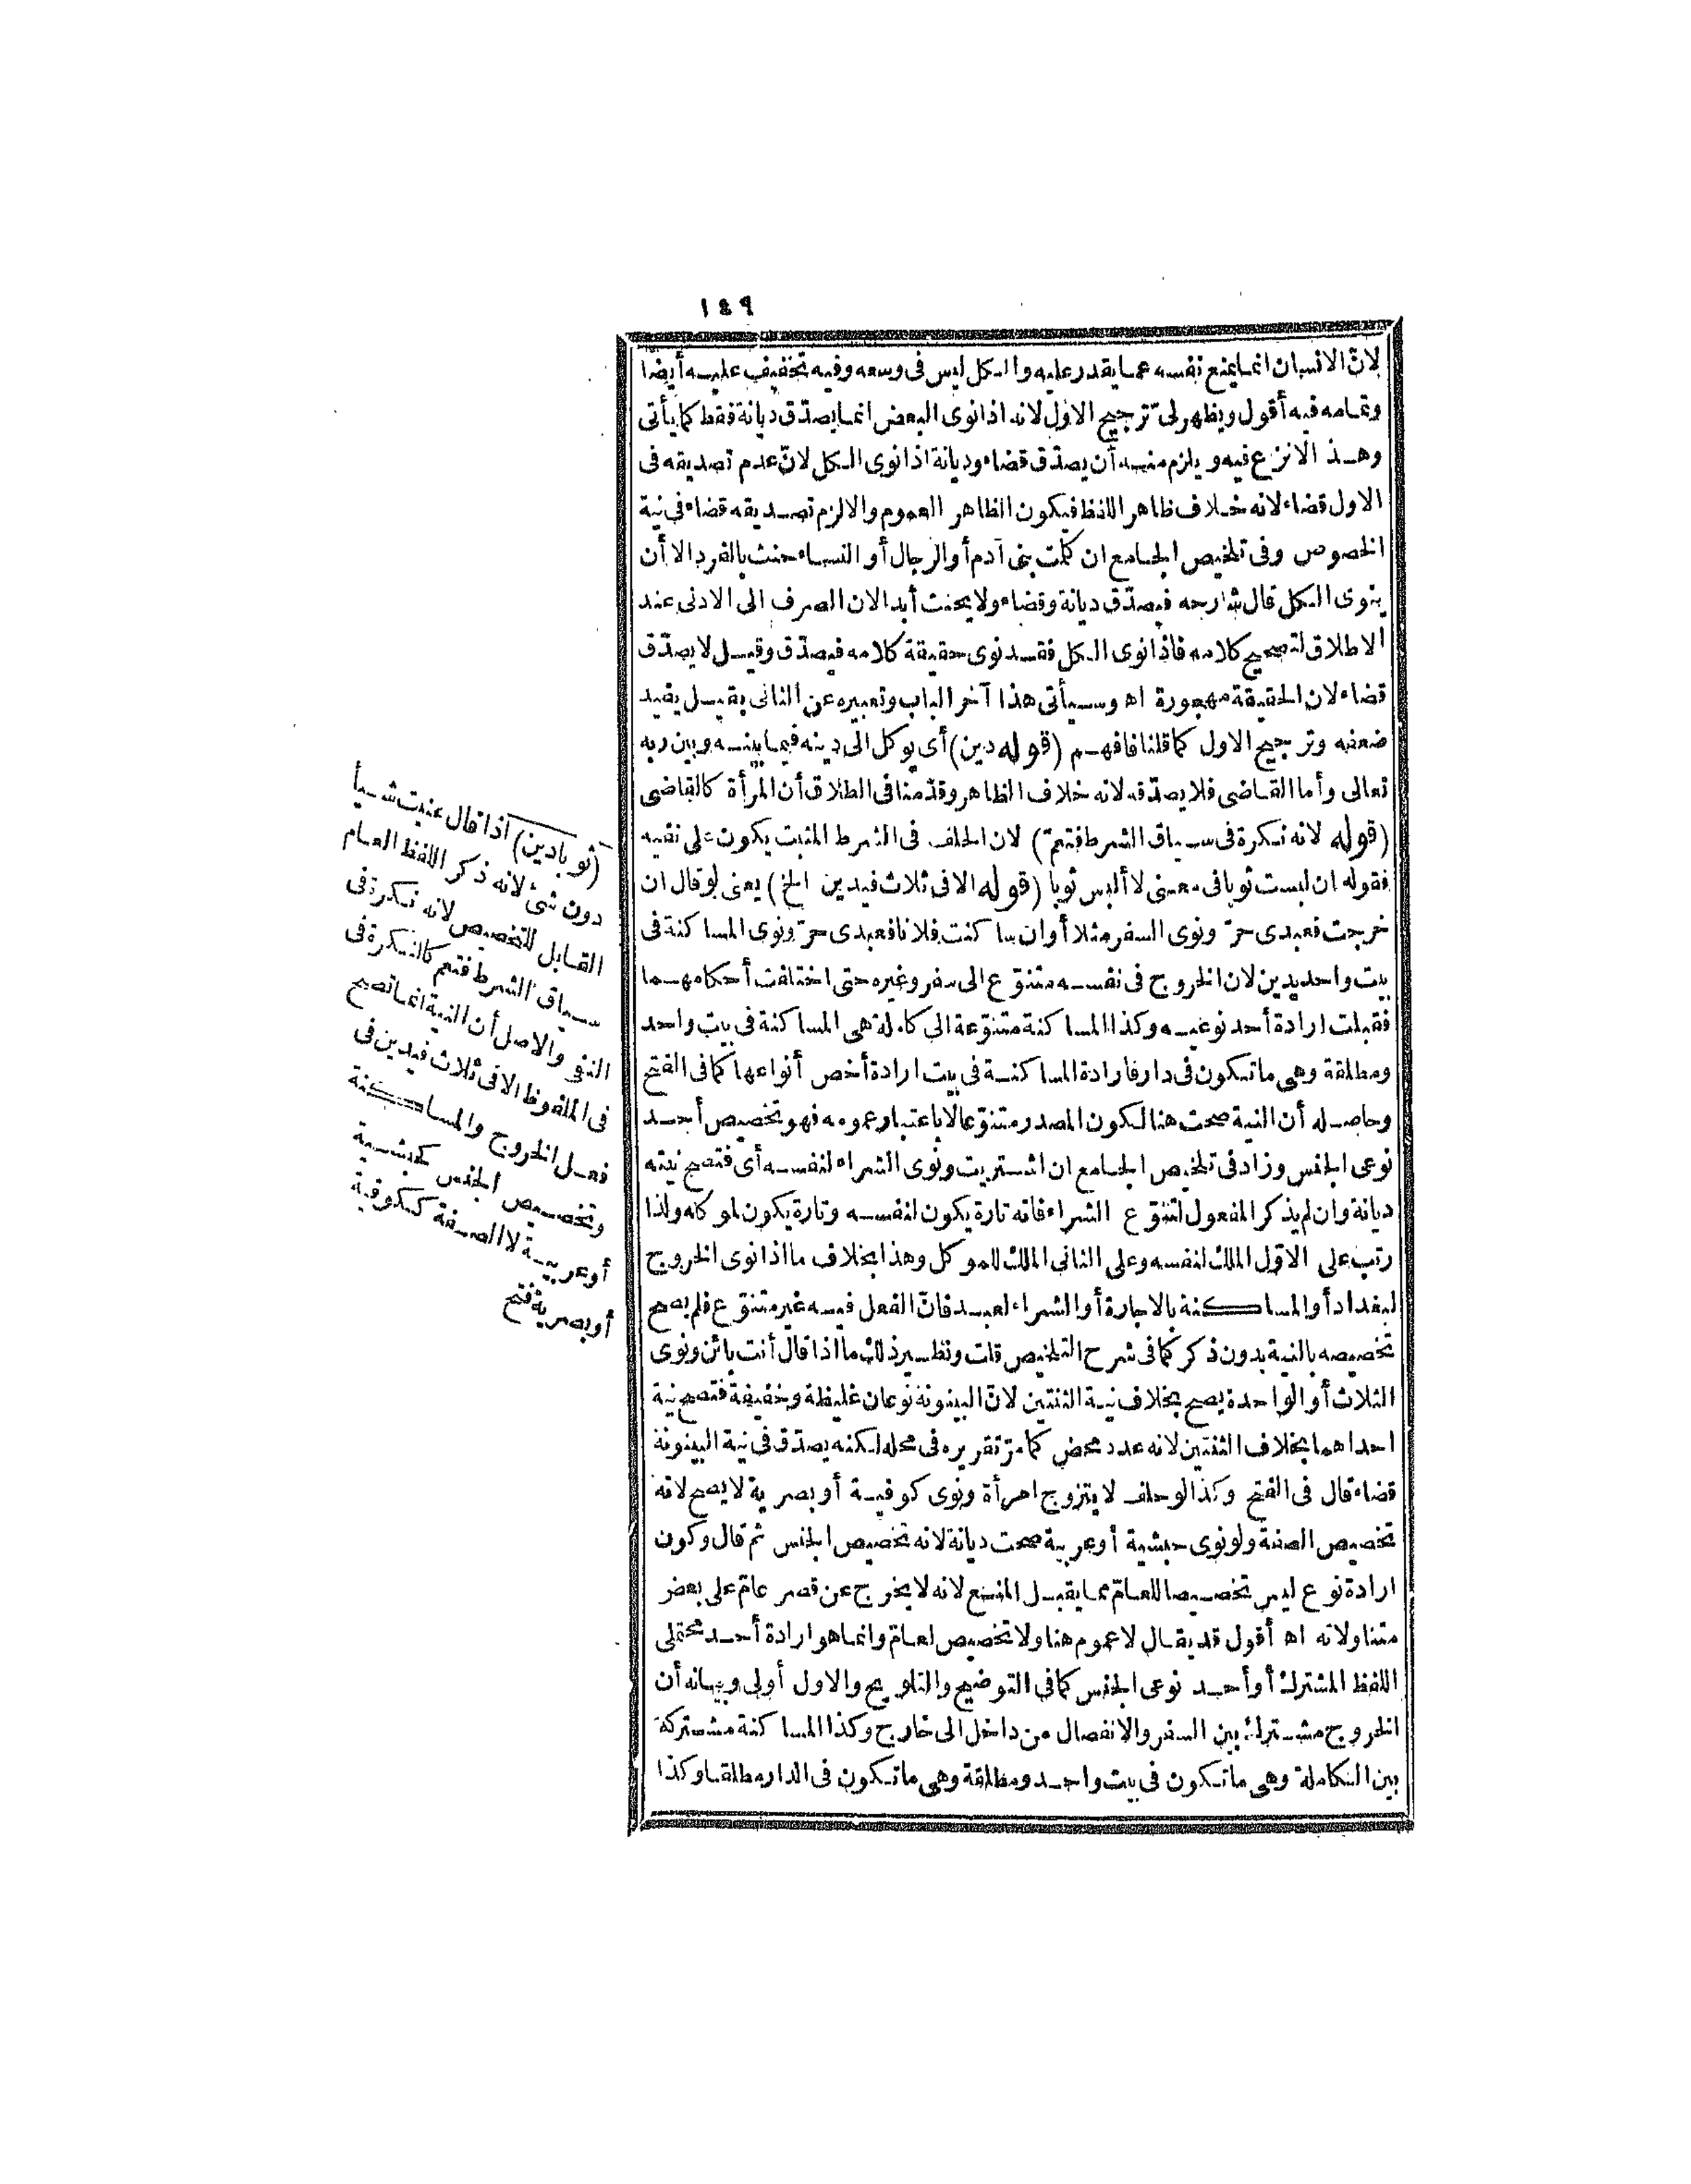 ١٤٩
لانّ الانسان انما يمنع نفسه عما يقدر عليه والكل ليس فى وسعه وفيه تخفيف عليه أيضا
وتمامه فيه أقول ويظهر لى ترجيح الاول لانه اذا نوى البعض انما يصدّق ديانة فقط كما يأتى
وهذا لانزع فيه ويلزم منه أن يصدّق قضاء وديانة اذا نوى الكل لانّ عدم تصديقه فى
الاول قضاء لانه خلاف ظاهر اللفظ فيكون الظاهر العموم والالزم تصديقه قضاء فى نية
الخصوص وفى تلخيص الجامع ان كلمت بنى آدم أو الرجال أو النساء حنث بالفرد الا أن
ينوى الكل قال شارحه فيصدّق ديانة وقضاء ولا يحنث أبدا لان الصرف الى الادنى عند
الاطلاق لتصحيح كلامه فاذا نوى الكل فقد نوى حقيقة كلامه فيصدّق وقيل لا يصدّق
قضاء لان الحقيقة مهجورة اه وسيأتى هذا آخر الباب وتعبيره عن الثانى بقيل يفيد
ضعفه وترجيح الاول كما قلنا فافهم (قوله دين) أى يوكل الى دينه فيما بينه وبين ربه
تعالى وأما القاضى فلا يصدّقه لانه خلاف الظاهر وقدّمنا فى الطلاق أن المرأة كالقاضى
(قوله لانه نكرة فى سياق الشرط فتعمّ) لان الحلف فى الشرط المثبت يكون على نفيه
فقوله ان لبست ثوبا فى معنى لا ألبس ثوبا (قوله الا فى ثلاث فيدين الخ) يعنى لو قال ان
خرجت فعبدى حرّ ونوى السفر مثلا أو ان ساكنت فلانا فعبدى حرّ ونوى المساكنة فى
بيت واحد يدين لان الخروج فى نفسه متنوّع الى سفر وغيره حتى اختلفت أحكامهما
فقبلت ارادة أحد نوعيه وكذا المساكنة متنوّعة الى كاملة هى المساكنة فى بيت واحد
ومطلقة وهى ما تكون فى دار فارادة المساكنة فى بيت ارادة أخص أنواعها كما فى الفتح
وحاصله أن النية صحت هنا لكون المصدر متنوّعا لا باعتبار عمومه فهو تخصيص أحد
نوعى الجنس وزاد فى تلخيص الجامع ان اشتريت ونوى الشراء لنفسه أى فتصح نيته
ديانة وان لم يذكر المفعول لتنوّع الشراء فانه تارة يكون لنفسه وتارة يكون لموكله ولذا
رتب على الاوّل الملك لنفسه وعلى الثانى الملك للموكل وهذا بخلاف ما اذا نوى الخروج
لبغداد أو المساكنة بالاجارة أو الشراء لعبد فانّ الفعل فيه غير متنوّع فلم يصح
تخصيصه بالنية بدون ذكر كما فى شرح التلخيص قلت ونظير ذلك ما اذا قال أنت بائن ونوى
الثلاث أو الواحدة يصح بخلاف نية الثنتين لانّ البينونة نوعان غليظة وخفيفة فتصح نية
احداهما بخلاف الثنتين لانه عدد محض كما مرّ تقريره فى محله لكنه يصدّق فى نية البينونة
قضاء قال فى الفتح وكذا لو حلف لا يتزوج امرأة ونوى كوفية أو بصرية لا يصح لانه
تخصيص الصفة ولو نوى حبشية أو عربية صحت ديانة لانه تخصيص الجنس ثم قال وكون
ارادة نوع ليس تخصيصا للعامّ مما يقبل المنع لانه لا يخرج عن قصر عامّ على بعض
متناولاته اه أقول قد يقال لا عموم هنا ولا تخصيص لعامّ وانما هو ارادة أحد محتملى
اللفظ المشترك أو أحد نوعى الجنس كما فى التوضيح والتلويح والاول أولى وبيانه أن
الخروج مشترك بين السفر والانفصال من داخل الى خارج وكذا المساكنة مشتركة
بين الكاملة وهى ما تكون فى بيت واحد ومطلقة وهى ما تكون فى الدار مطلقا وكذا
(ثوبا دين) اذا قال عنيت شيأ
دون شئ لانه ذكر اللفظ العام
القابل للتخصيص لانه نكرة فى
سياق الشرط فتعم كالنكرة فى
النفى والاصل أن النية انما تصح
فى الملفوظ الا فى ثلاث فيدين فى
فعل الخروج والمساكنة
وتخصيص الجنس كحبشية
أو عربية لا الصفة ككوفية
أو بصرية فتح